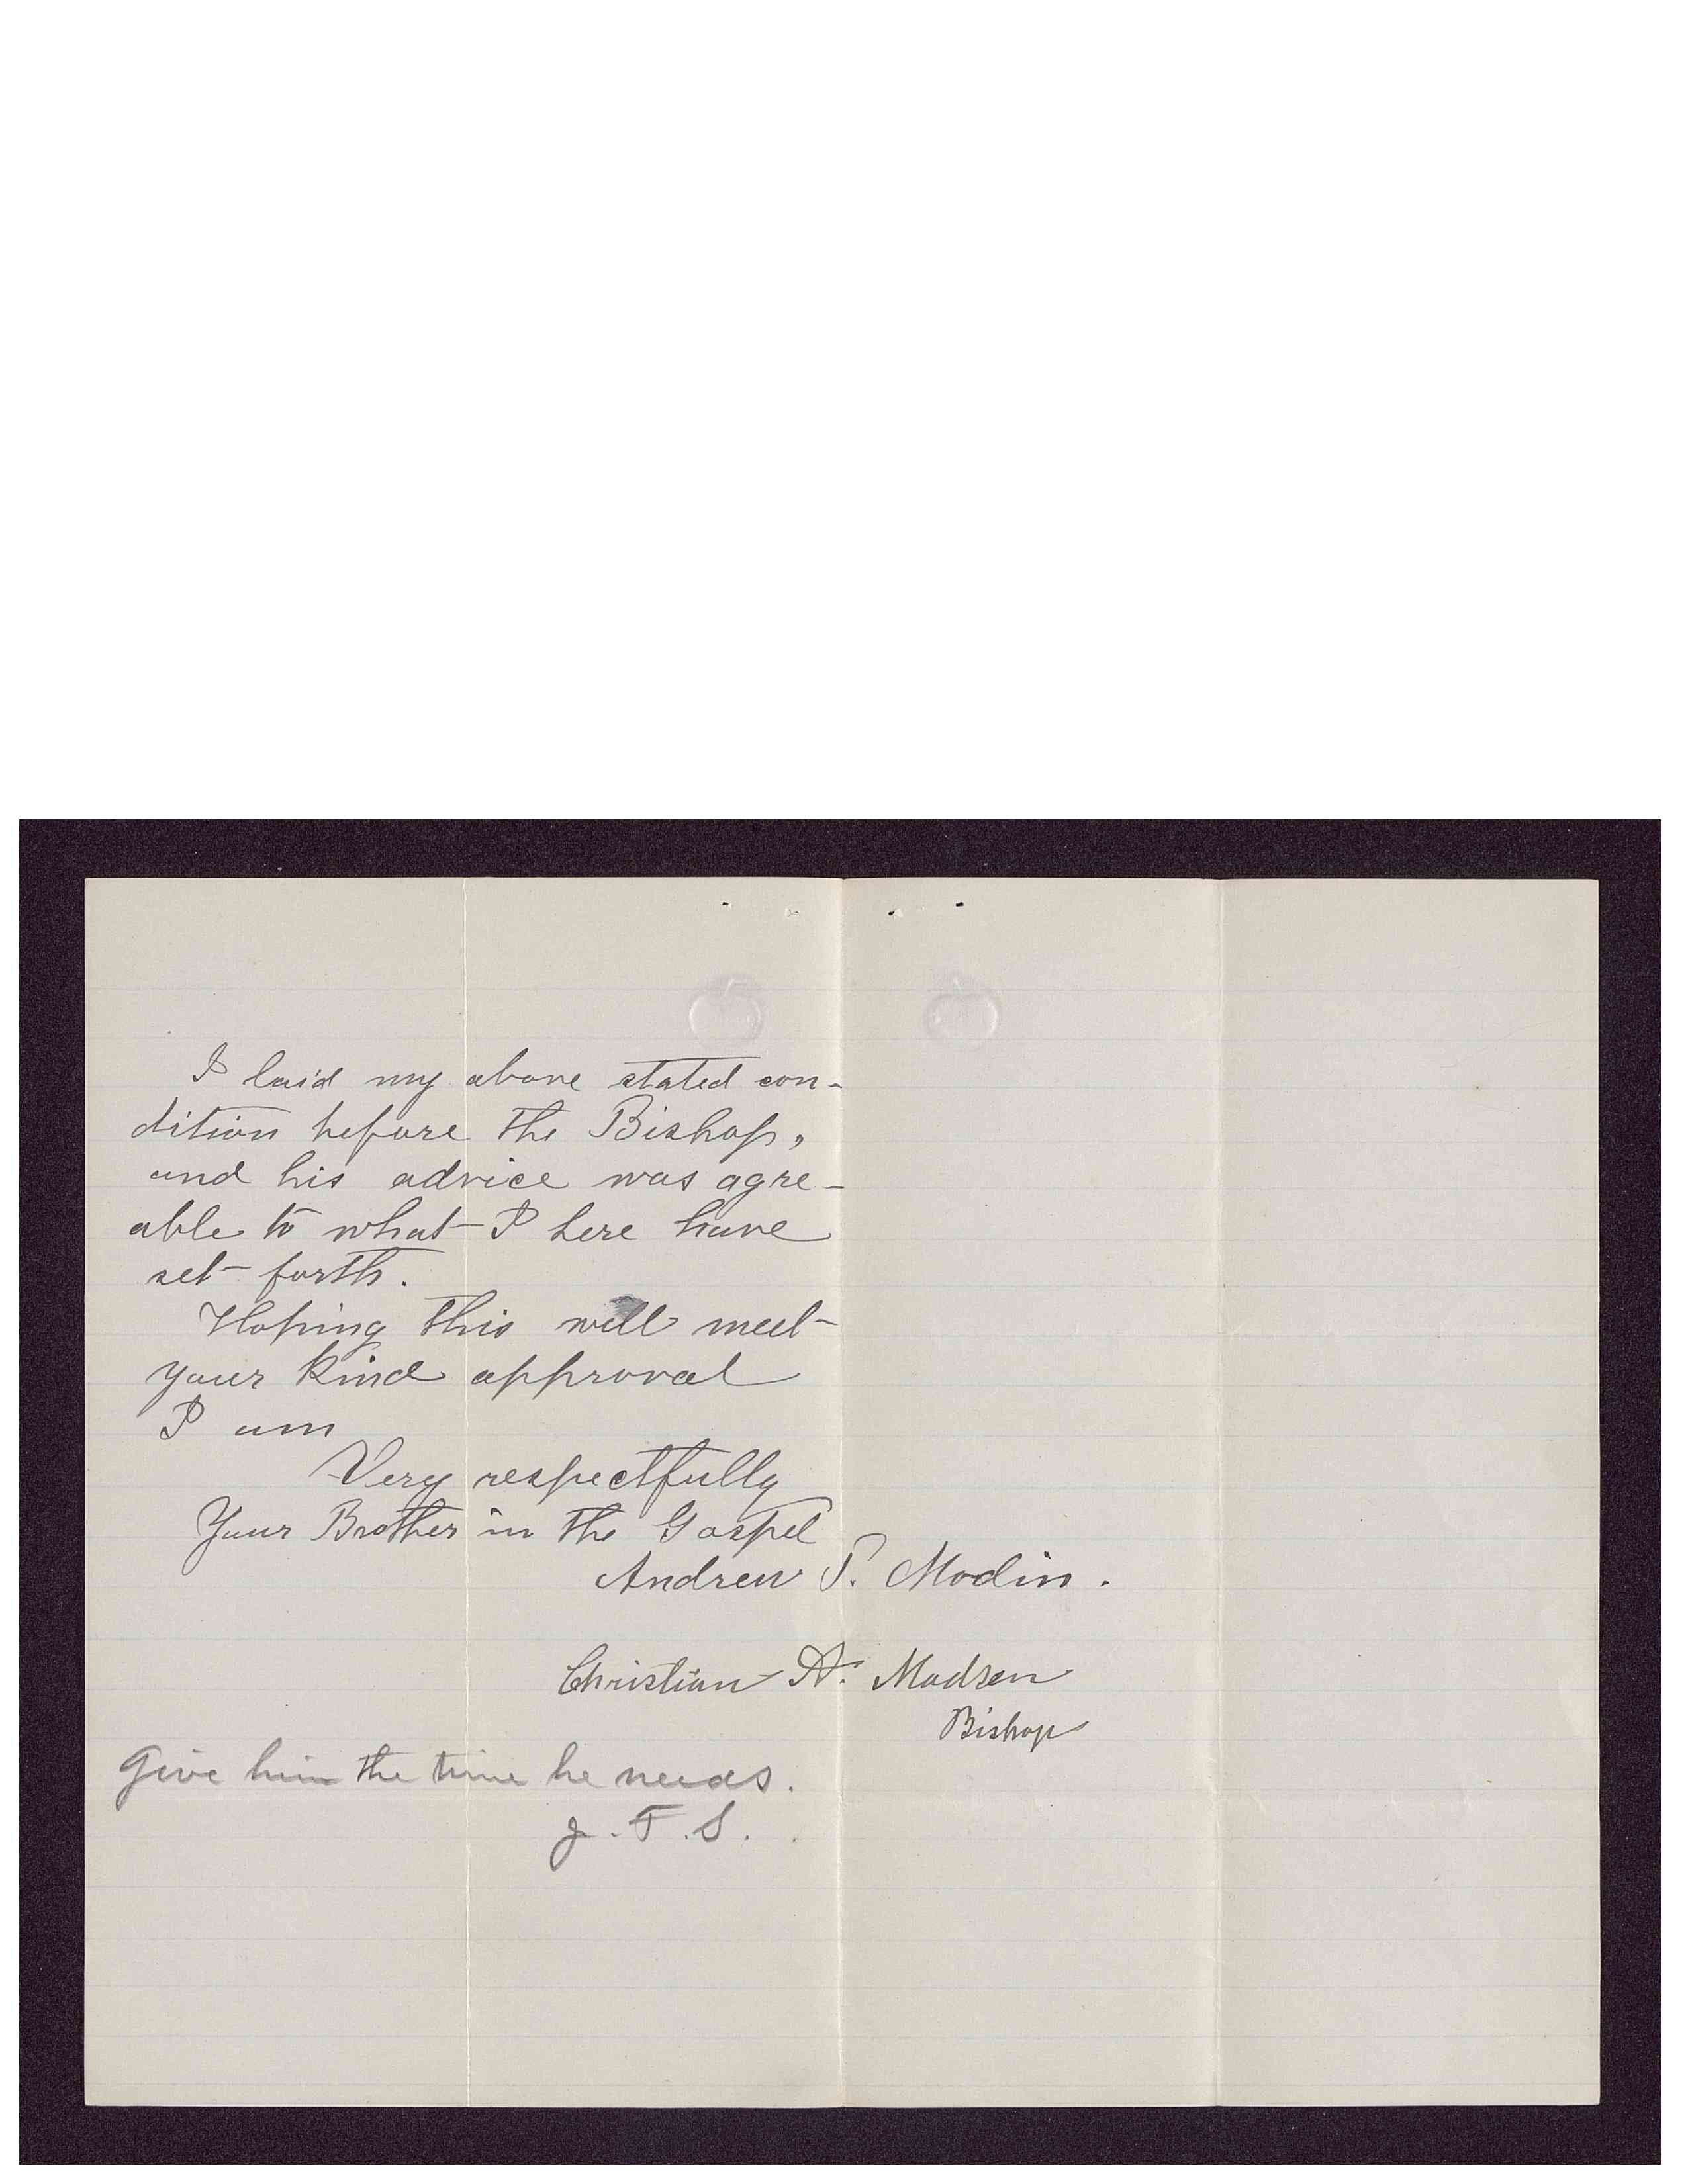 I laid my above stated con-
dition before the Bishop,
and his advice was agre-
able to what I here have
set forth.
Hoping this will meet
your kind approval
I am
Very respectfully
Your Brother in the Gospel
Andrew P. Modin.
Christian A. Madsen
Bishop
Give him the time he needs.
J. F. S.